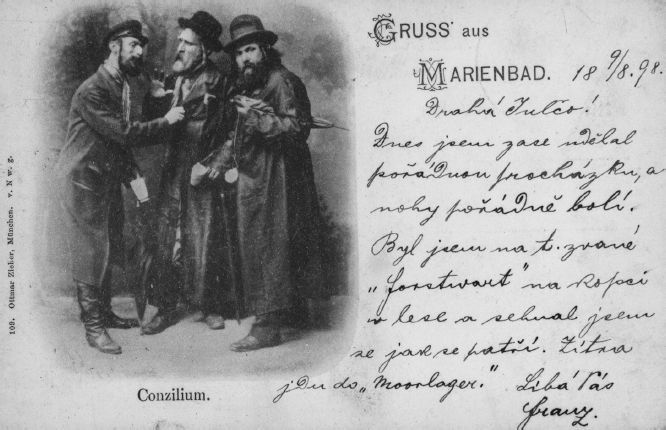 GRUSS aus
MARIENBAD. 18 9/8. 98.
Drahá Julčo!
Dnes jsem zase udělal
pořádnou procházku, a
nohy pořádně bolí.
Byl jsem na t. zvané
„Forstwart" na kopci
v lese a sehnal jsem
se jak se patří. Zítra
jdu do „Moorlager."
Líbá Vás
Franz.
Conzilium.
106. Ottmar Zieher, München. v. N w. g.